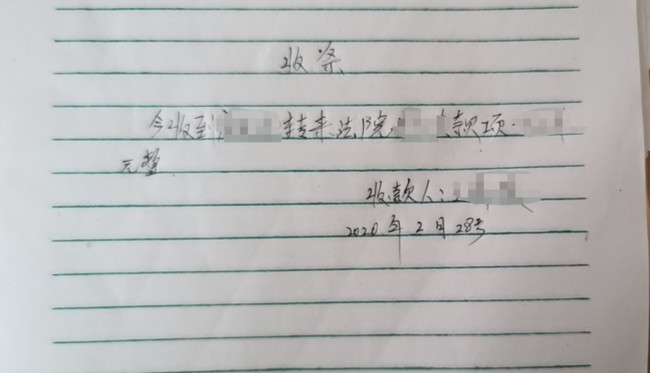 收条
今收到 转来法院 款项
元整
收款人:
2020年2月28号